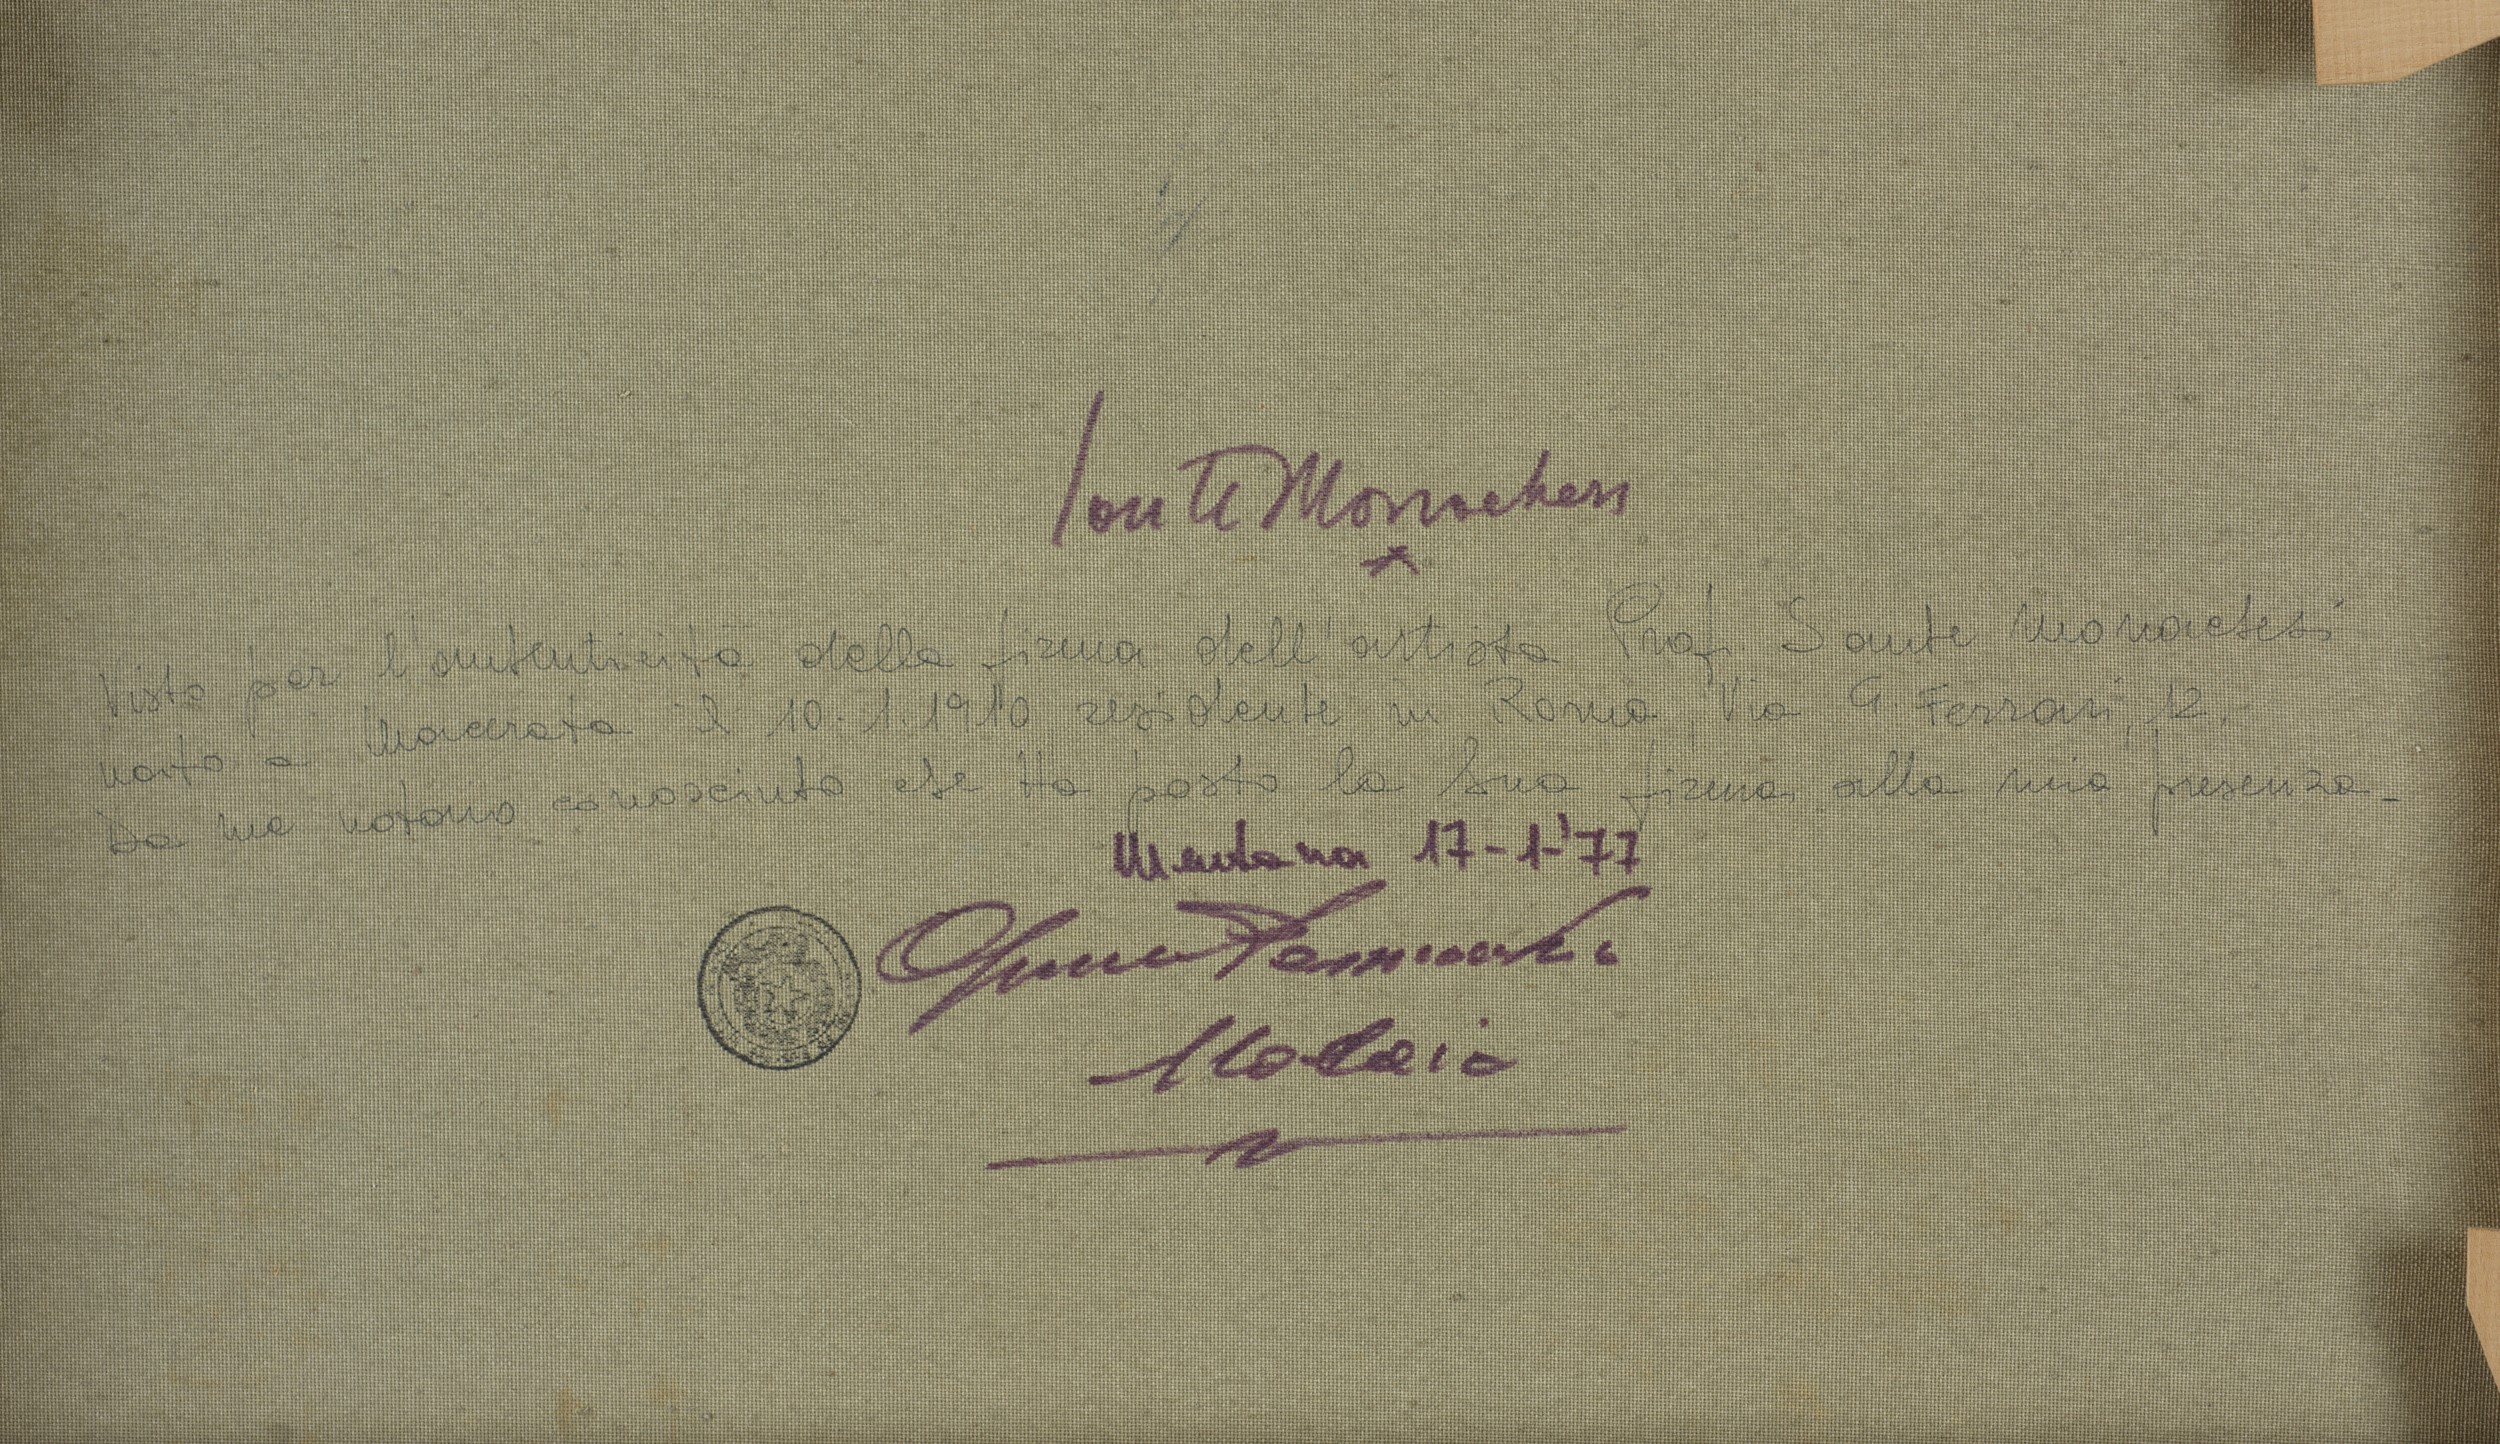 Sante Monachesi
Visto per l'autenticità della firma dell'artista Prof. Sante Monachesi
nato a Macerata il 10.1.1910 residente in Roma, Via G. Ferrari, 12,
Da me notaio conosciuto che ha posto la sua firma alla mia presenza-
Mentana 17-1-'77
Notaio